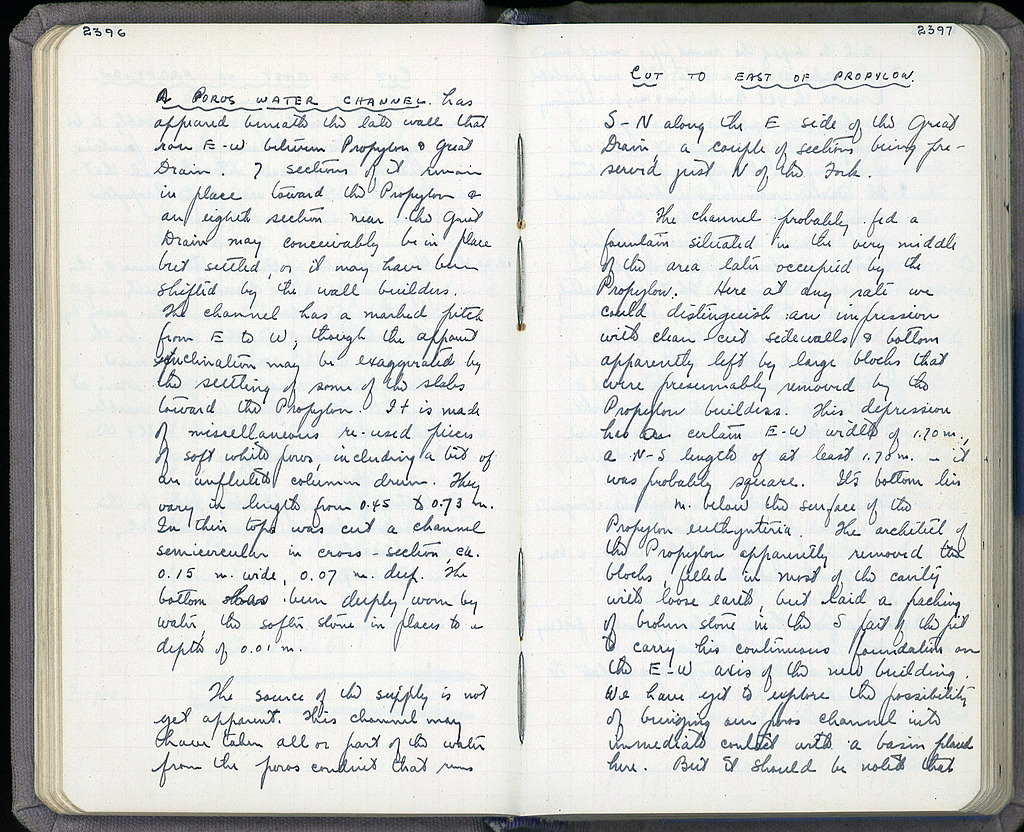 2396
A POROS WATER CHANNEL. has
appeared beneath the late wall that
ran E-W between Propylon & Great
Drain. 7 sections of it remain
in place toward the Propylon &
an eighth section near the Great
Drain may conceivably be in place
but settled, or it may have been
shifted by the wall builders.
The channel has a marked pitch
from E to W, though the apparent
inclination may be exaggerated by
the settling of some of the slabs
toward the Propylon. It is made
of miscellaneous re-used pieces
of soft white poros, including a bit of
an unfluted column drum. They
vary in length from 0.45 to 0.73 m.
In their tops was cut a channel
semicircular in cross-section, ca.
0.15 m. wide, 0.07 m. deep. The
bottom has been deeply worn by
water, the softer stone in places to a
depth of 0.01 m.
The source of the supply is not
yet apparent. This channel may
have taken all or part of the water
from the poros conduit that runs
2397
CUT TO EAST OF PROPYLON.
S-N along the E side of the Great
Drain – a couple of sections being pre-
served just N of the Fork.
The channel probably fed a
fountain situated in the very middle
of the area later occupied by the
Propylon. Here at any rate we
could distinguish an impression
with clean-cut sidewalls & bottom
apparently left by large blocks that
were presumably removed by the
Propylon builders. This depression
has a certain E-W width of 1.70 m.,
a N-S length of at least 1.70 m. – it
was probably square. It's bottom lies
m. below the surface of the
Propylon euthynteria. The architect of
the Propylon apparently removed the
blocks, filled in most of the cavity
with loose earth, but laid a packing
of broken stone in the S part of the pit
to carry his continuous foundation on
the E-W axis of the new building.
We have yet to explore the possibility
of bringing our poros channel into
immediate contact with a basin placed
here. But it should be noted that